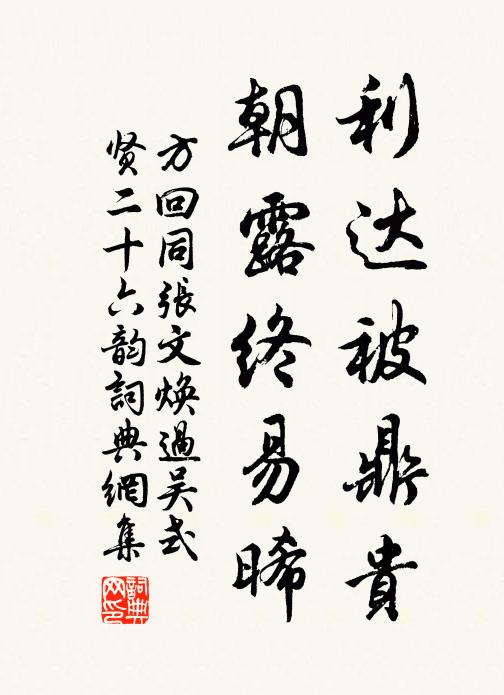 利达被鼎貴
朝露終易晞
方回同張文焕過吴式
贤二十六韵詞典網集
詞典网印